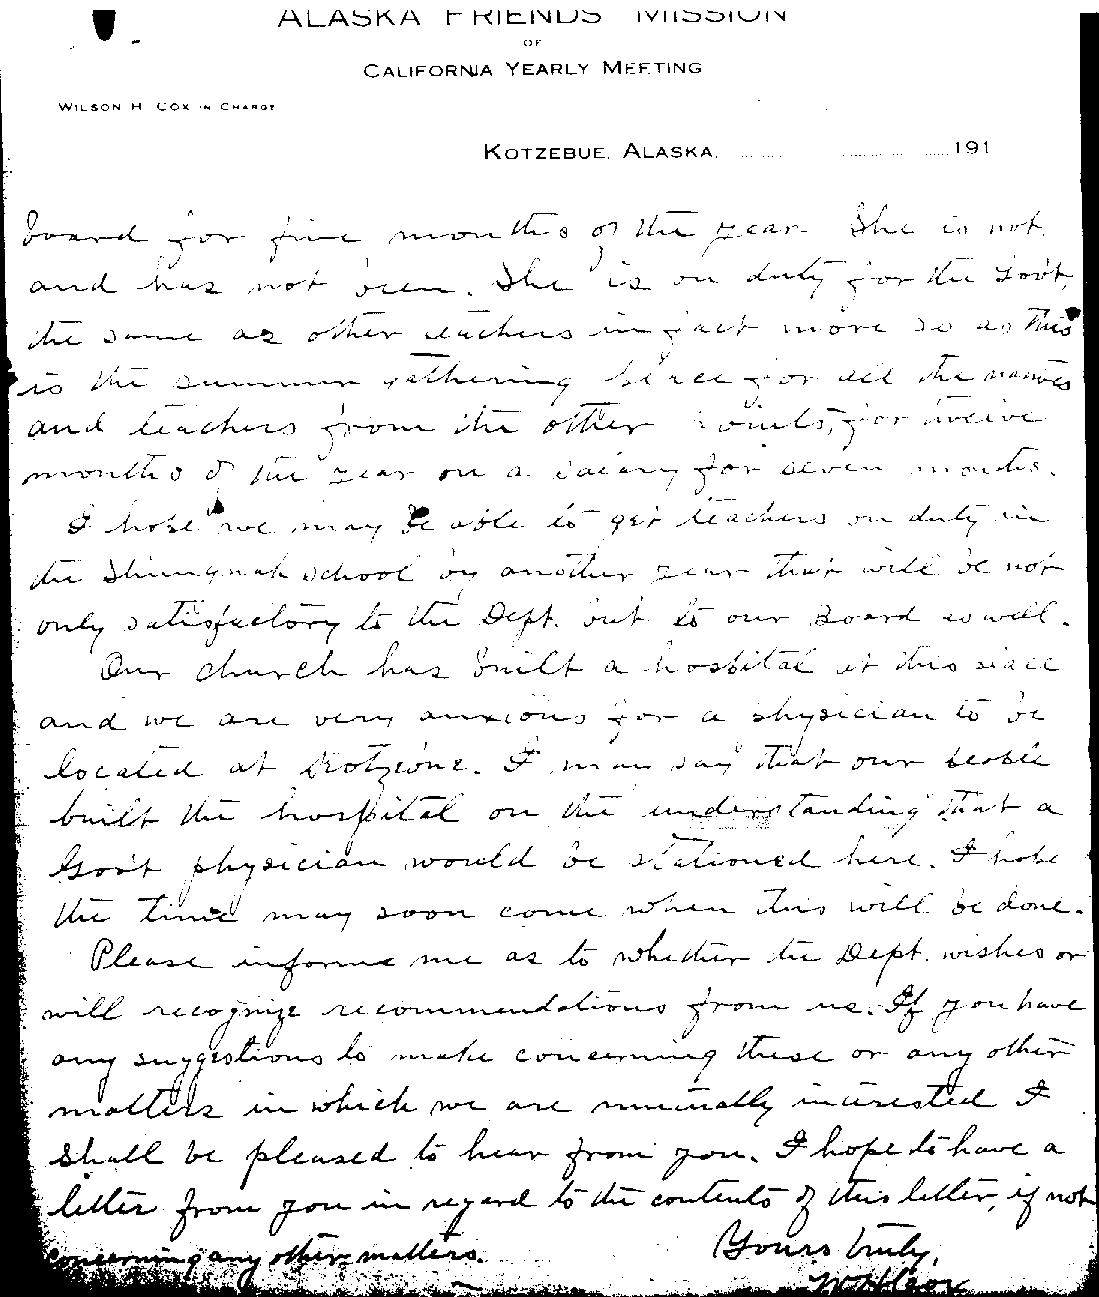 ALASKA FRIENDS MISSION
OF
CALIFORNIA YEARLY MEETING
WILSON H. COX IN CHARGE
KOTZEBUE, ALASKA, 191
board for five months of the year. She is not,
and has not been. She is on duty for the Gov't,
the same as other teachers in fact more so as this
is the summer gathering place for all the natives
and teachers from the other points, for twelve
months of the year on a salary for seven months.
I hope we may be able to get teachers on duty in
the Shungnak school by another year that will be not
only satisfactory to the Dept. but to our Board as well.
Our church has built a hospital at this place
and we are very anxious for a physician to be
located at Kotzebue. I may say that our people
built the hospital on the understanding that a
Gov't physician would be stationed here. I hope
the time may soon come when this will be done.
Please informe me as to whether the Dept. wishes or
will recognize recommendations from us. If you have
any suggestions to make concerning these or any other
matters in which we are mutually interested I
shall be pleased to hear from you. I hope to have a
letter from you in regard to the contents of this letter, if not
concerning any other matters.
Yours truly,
W H Cox